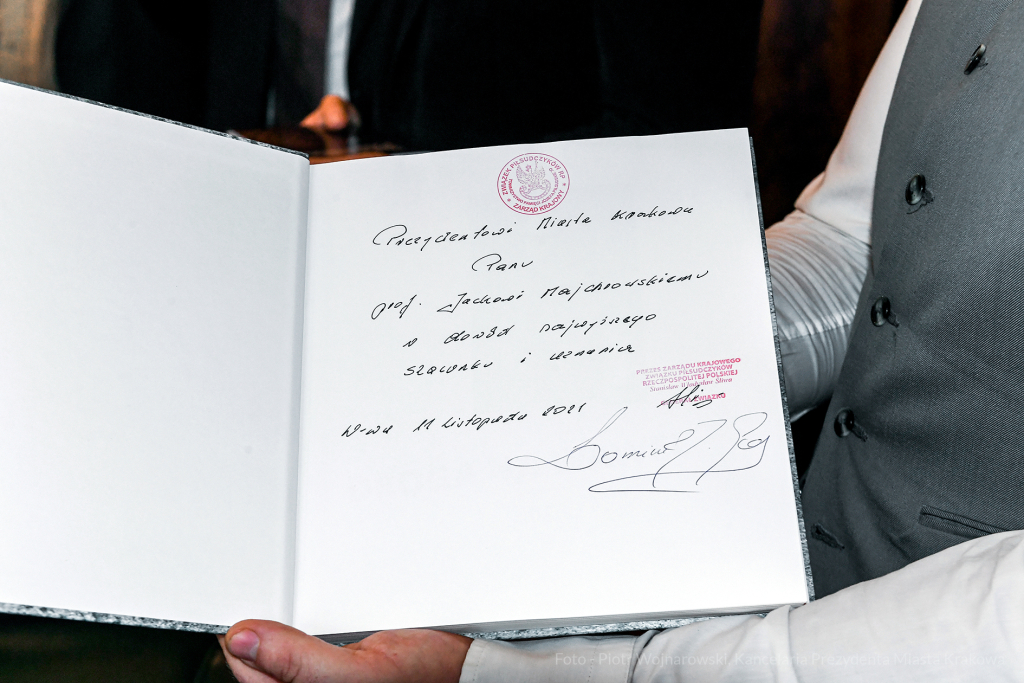 ZWIĄZEK PIŁSUDCZYKÓW RP
ZARZĄD KRAJOWY
Prezydentowi Miasta Krakowa
Panu
prof. Jackowi Majchrowskiemu
w dowód najwyższego
szacunku i uznania
PREZES ZARZĄDU KRAJOWEGO
ZWIĄZKU PIŁSUDCZYKÓW
RZECZPOSPOLITEJ POLSKIEJ
Stanisław Władysław Śliwa
W-wa 11 Listopada 2021
Dominik J.
Foto - Piotr Wojnarowski, Kancelaria Prezydenta Miasta Krakowa